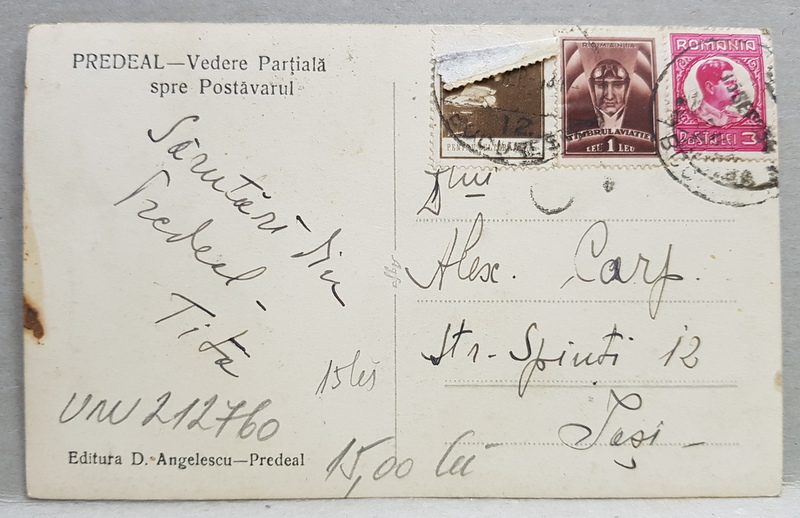 PREDEAL—Vedere Parțială
spre Postăvarul
Sărutări din
Predeal –
Tita
15 lei
UNU 212760
Editura D. Angelescu—Predeal
15,00 lei
Agfa
ROMANIA
TIMBRUL AVIAȚIEI
LEU 1 LEU
ROMANIA
POSTA LEI 3
12
Dlui
Alex. Carp.
Str. Spinti 12
Iași –